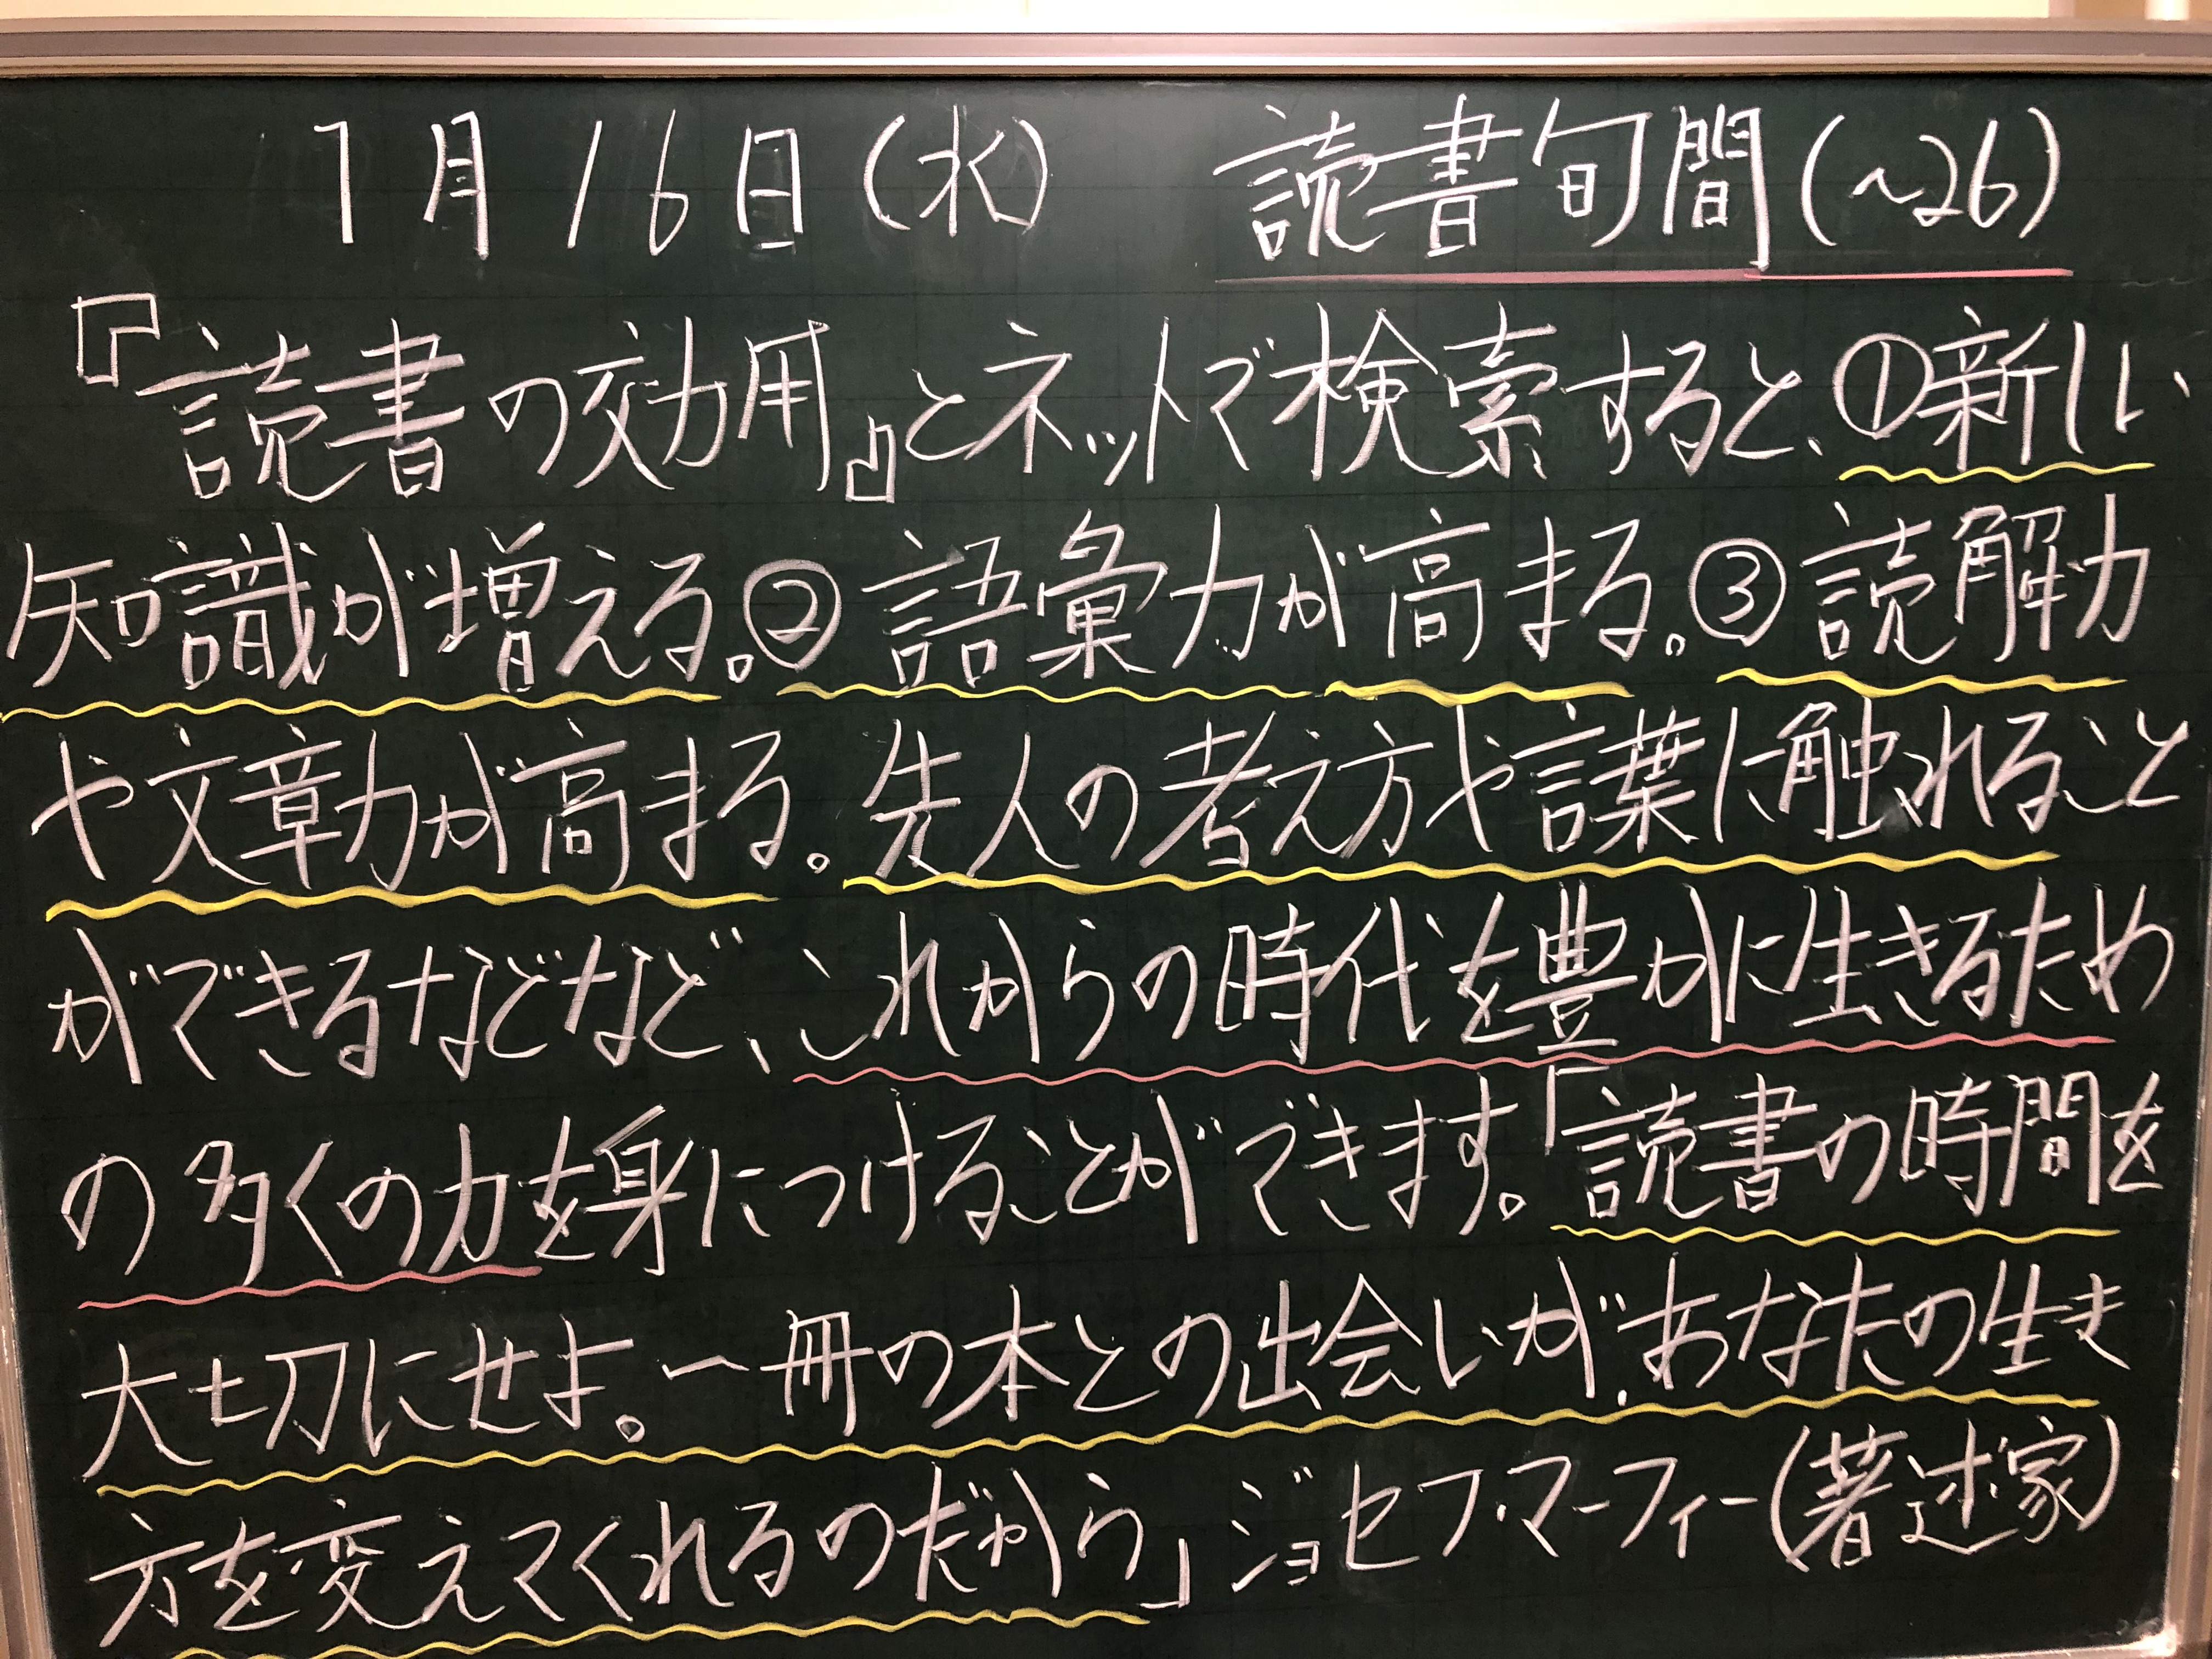 1月16日(水) 読書旬間(～26)
『読書の効用』とネットで検索すると、①新しい
知識が増える。②語彙力が高まる。③読解力
や文章力が高まる。先人の考え方や言葉に触れること
ができるなどなど、これからの時代を豊かに生きるため
の多くの力を身につけることができます。「読書の時間を
大切にせよ。一冊の本との出会いが、あなたの生き
方を変えてくれるのだから」ジョセフ・マーフィー(著述家)